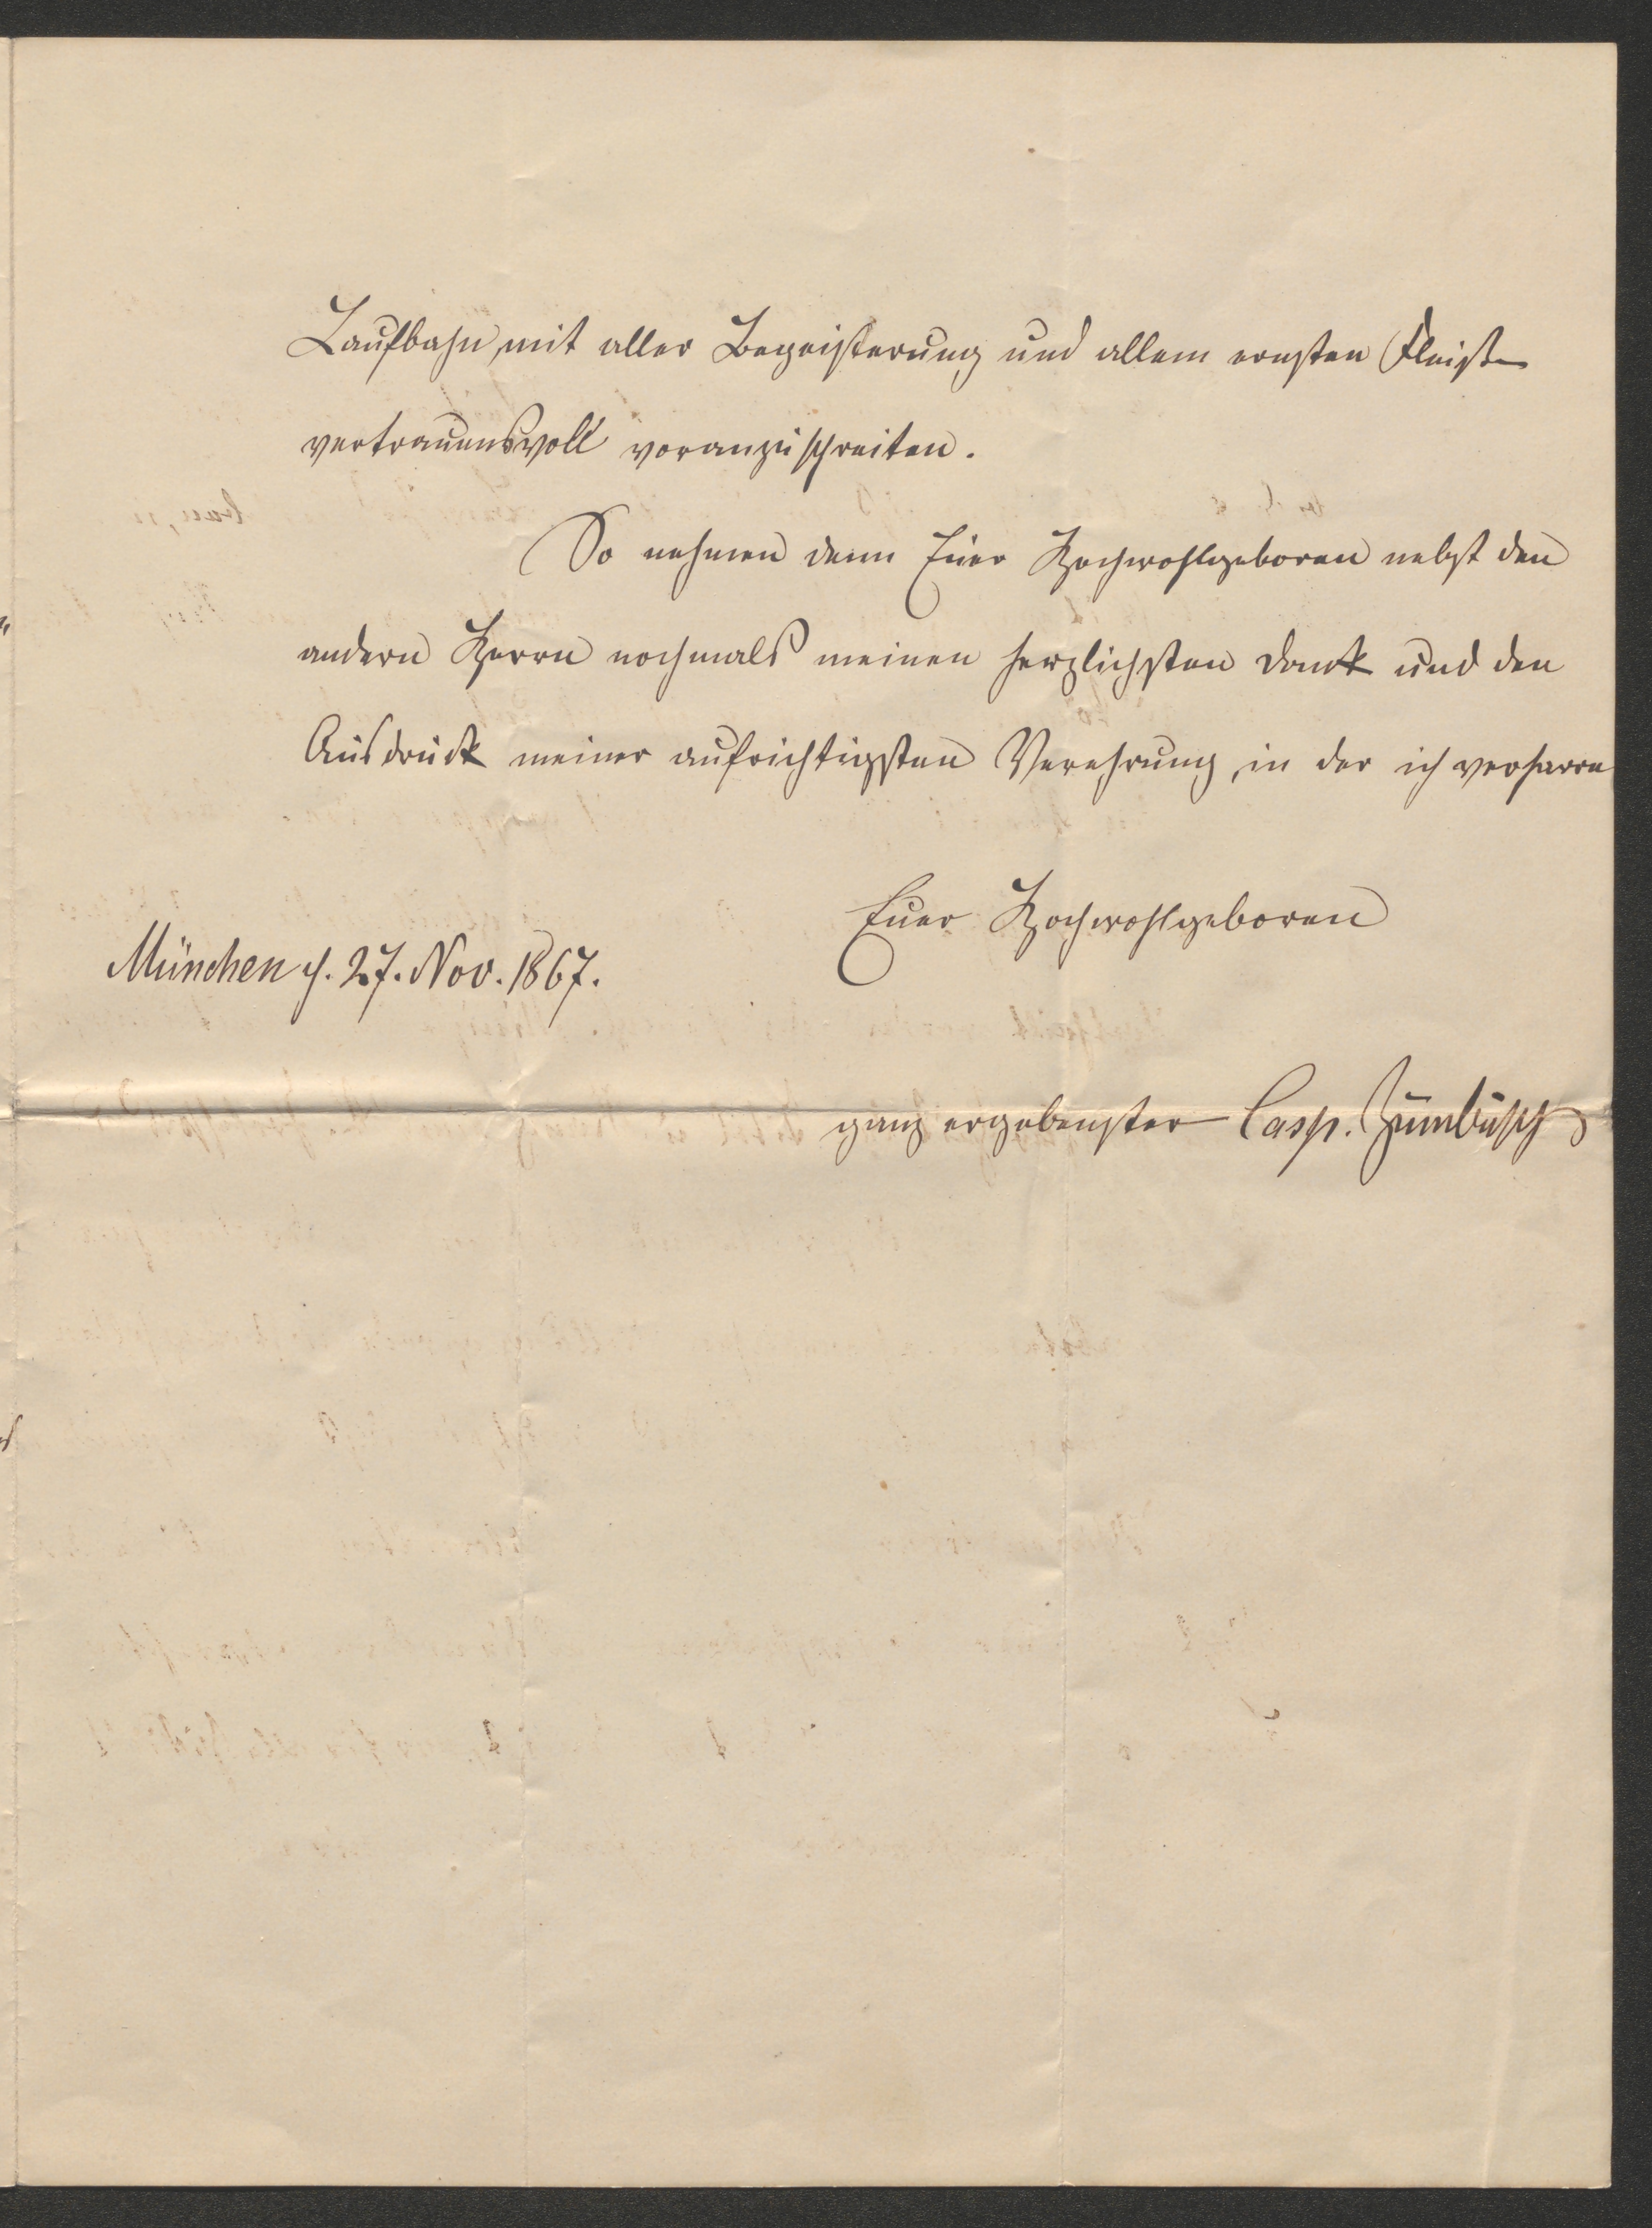 Laufbahn, mit aller Begeisterung und allem ernsten Fleiße
vertrauensvoll voranzuschreiten.
So nehmen denn Euer Hochwohlgeboren nebst den
andern Herrn nochmals meinen herzlichsten Dank und den
Ausdruck meiner aufrichtigsten Verehrung, in der ich verharre
Euer Hochwohlgeboren
München d. 27. Nov. 1867.
ganz ergebenster Casp. Zumbusch